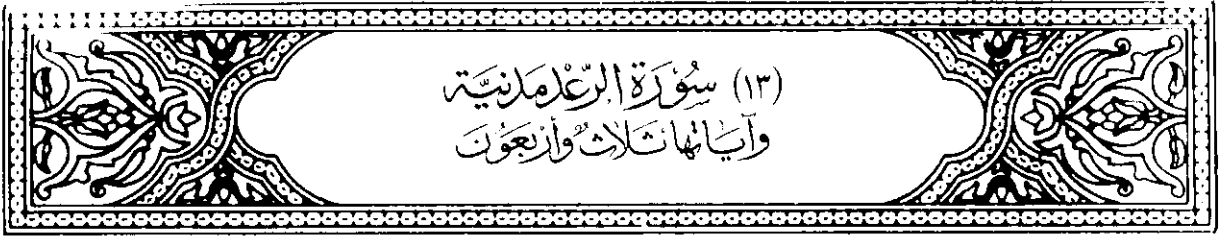 (١٣) سُوْرَة الرّعْد مَدَنيَّة
وآيَاتها ثَلَاثٌ وأَرْبَعُوْن